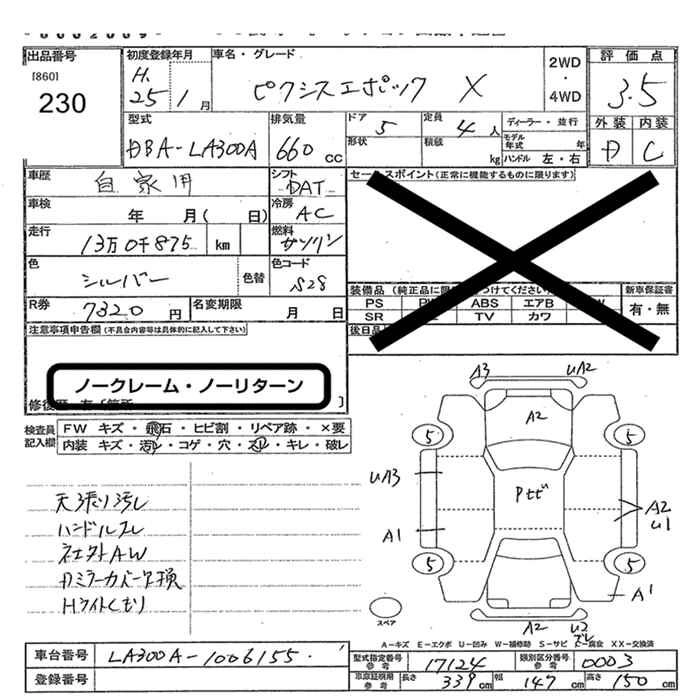 出品番号
[860]
230
初度登録年月
H.
25 1 月
車名・グレード
ピクシスエポック X
2WD
・
4WD
評価点
3.5
外装 内装
D C
型式
DBA-LA300A
排気量
660 cc
ドア
5
定員
4 人
形状
積載
kg
ディーラー・並行
モデル
年式 年
ハンドル 左・右
車歴
自家用
シフト
DAT
車検
年 月( 日)
冷房
AC
走行
13万0千875 km
燃料
ガソリン
色
シルバー
色替
色コード
S28
R券
7320 円
名変期限
月 日
セールスポイント(正常に機能するものに限ります)
装備品(純正品に限
つけてください
新車保証書
有・無
PS
ABS エアB
SR
TV カワ
後日品
注意事項申告欄(不具合内容等は具体的に記入して下さい)
ノークレーム・ノーリターン
検査員
記入欄
FW キズ・飛石・ヒビ割・リペア跡・×要
内装 キズ・汚レ・コゲ・穴・スレ・キレ・破レ
天張り汚レ
ハンドルスレ
社外AW
Dミラーカバー交換
Hライトくもり
A3 UA2
A2
5 5
UA3
Pナビ
A2
U1
A1
5 5
A1
スペア
A2 U2
スレ
A-キズ E-エクボ U-凹み W-補修跡 S-サビ C-腐食 XX-交換済
車台番号
LA300A-1006155
登録番号
型式指定番号
参考
17124
類別区分番号
参考
0003
車庫証明用
参考
長さ 339 cm
幅 147 cm
高さ 150 cm